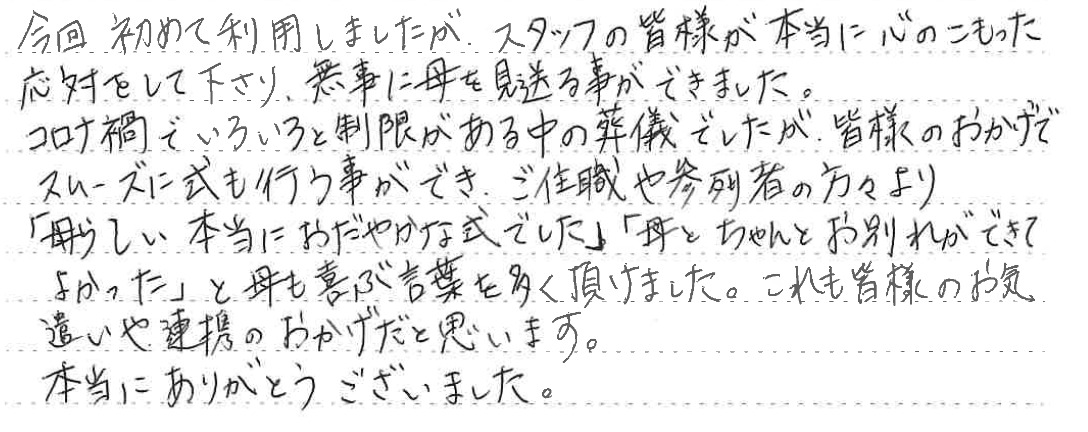 今回 初めて利用しましたが、スタッフの皆様が本当に心のこもった
応対をして下さり、無事に母を見送る事ができました。
コロナ禍でいろいろと制限がある中の葬儀でしたが、皆様のおかげで
スムーズに式も行う事ができ、ご住職や参列者の方々より
「母らしい 本当におだやかな式でした」「母とちゃんとお別れができて
よかった」と母も喜ぶ言葉を多く頂けました。これも皆様のお気
遣いや連携のおかげだと思います。
本当にありがとうございました。